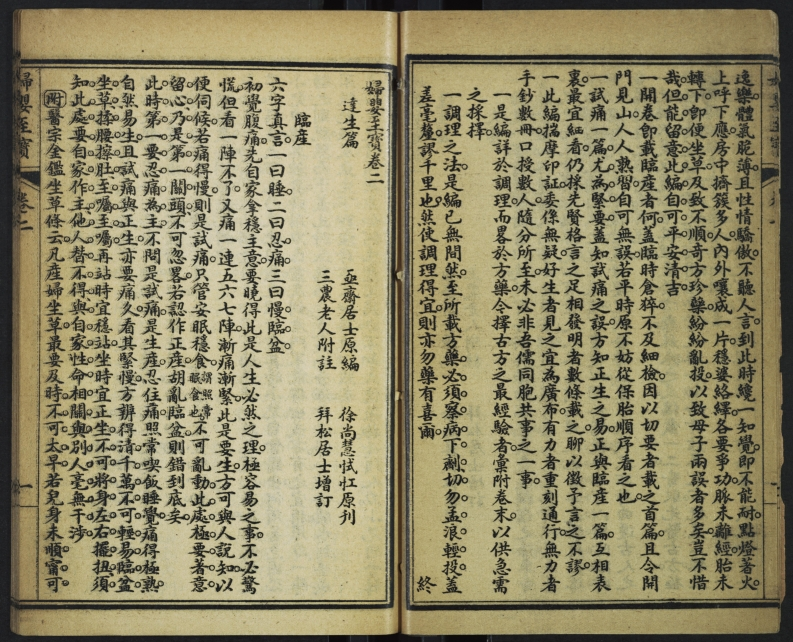 逸樂體氣脆薄且性情驕傲不聽人言到此時纔一知覺即不能耐點燈着火
上呼下應房中擠簇多人內外嚷成一片穩婆絡繹各要爭功脉未離經胎未
轉下即便坐草及致不順奇方珍藥紛紛亂投以致母子兩誤者多矣豈不惜
哉但能留意此編自可平安清吉
一開卷即載臨産者何蓋臨時倉猝不及細檢因以切要者載之首篇且令開
門見山人人熟習自可無誤若平時原不妨從保胎順序看之也
一試痛一篇尤為緊要蓋知試痛之誤方知正生之易正與臨産一篇互相表
裏最宜細看仍採先賢格言之足相發明者數條載之聊以徵予言之不謬
一此編揣摩印証委係無疑好生者見之宜為廣布有力者重刻通行無力者
手鈔數冊口授數人隨分所至未必非吾儒同胞共事之一事
一是編詳於調理而畧於方藥今擇古方之最經驗者彙附卷末以供急需
之採擇
一調理之法是編已無間然至所載方藥必須察病下劑切勿孟浪輕投蓋
差毫釐謬千里也然使調理得宜則亦勿藥有喜爾 終
婦嬰至寶卷二
達生篇 亟齋居士原編 徐尚慧忒㤀原刋
三農老人附註 拜松居士增訂
臨産
六字真言一曰睡二曰忍痛三曰慢臨盆
初覺腹痛先自家拿穩主意要曉得此是人生必然之理極容易之事不必驚
慌但看一陣不了又痛一連五六七陣漸痛漸緊此是要生方可與人說知以
便伺候若痛得慢則是試痛只管安眠穩食謂照常眠食也不可亂動此處極要着意
留心乃是第一關頭不可忽畧若認作正産胡亂臨盆則錯到底矣
此時第一要忍痛為主不問是試痛是生産忍住痛照常喫飯睡覺痛得極熟
自然易生且試痛與正生亦要痛久看其緊慢方辨得清千萬不可輕易臨盆
坐草揉腰擦肚至囑至囑再站時宜穩站坐時宜正坐不可將身左右擺扭須
知此處要自家作主他人替不得與自家性命相關與別人毫無干涉
附醫宗金鑑坐草條云凡産婦坐草最要及時不可太早若兒身未順甯可
婦嬰至寶 卷二 一